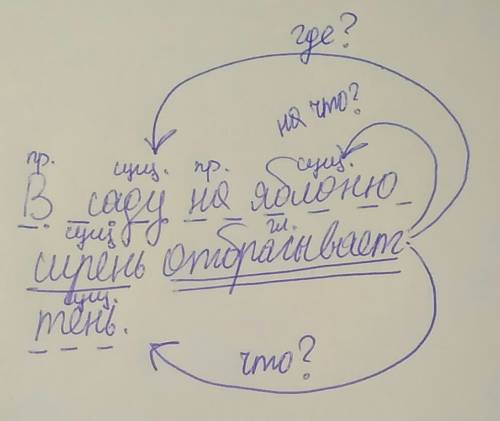 где?
на что?
пр. сущ. пр. сущ.
В саду на яблоню
сущ гл.
сирень отбрасывает
сущ.
тень.
что?